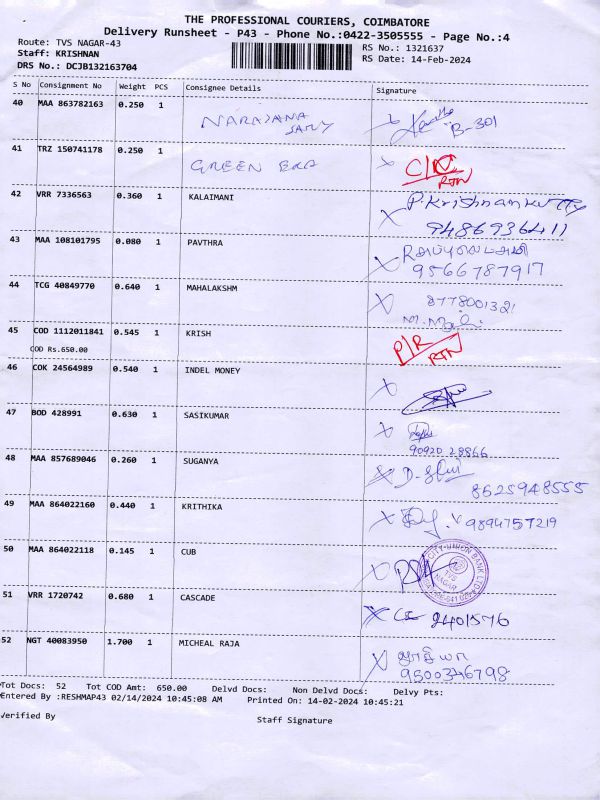 THE PROFESSIONAL COURIERS, COIMBATORE
Delivery Runsheet - P43 - Phone No.:0422-3505555 - Page No.:4
Route: TVS NAGAR-43
RS No.: 1321637
Staff: KRISHNAN
RS Date: 14-Feb-2024
DRS No.: DCJB132163704
S No Consignment No Weight PCS Consignee Details Signature
40 MAA 863782163 0.250 1 NARAYANA SAMY B-301
41 TRZ 150741178 0.250 1 GREEN ERA RTN
42 VRR 7336563 0.360 1 KALAIMANI P.Krishnankutty
9486936411
43 MAA 108101795 0.080 1 PAVTHRA
9566787917
44 TCG 40849770 0.640 1 MAHALAKSHM 8778001321
45 COD 1112011841 0.545 1 KRISH P/R
COD Rs.650.00 RTN
46 COK 24564989 0.540 1 INDEL MONEY
47 BOD 428991 0.630 1 SASIKUMAR
90920 28866
48 MAA 857689046 0.260 1 SUGANYA
8625948555
49 MAA 864022160 0.440 1 KRITHIKA 9894757219
50 MAA 864022118 0.145 1 CUB
CITY UNION BANK LTD
TVS NAGAR
51 VRR 1720742 0.680 1 CASCADE 2401576
52 NGT 40083950 1.700 1 MICHEAL RAJA
9500346798
Tot Docs: 52 Tot COD Amt: 650.00 Delvd Docs: Non Delvd Docs: Delvy Pts:
Entered By :RESHMAP43 02/14/2024 10:45:08 AM Printed On: 14-02-2024 10:45:21
Verified By
Staff Signature